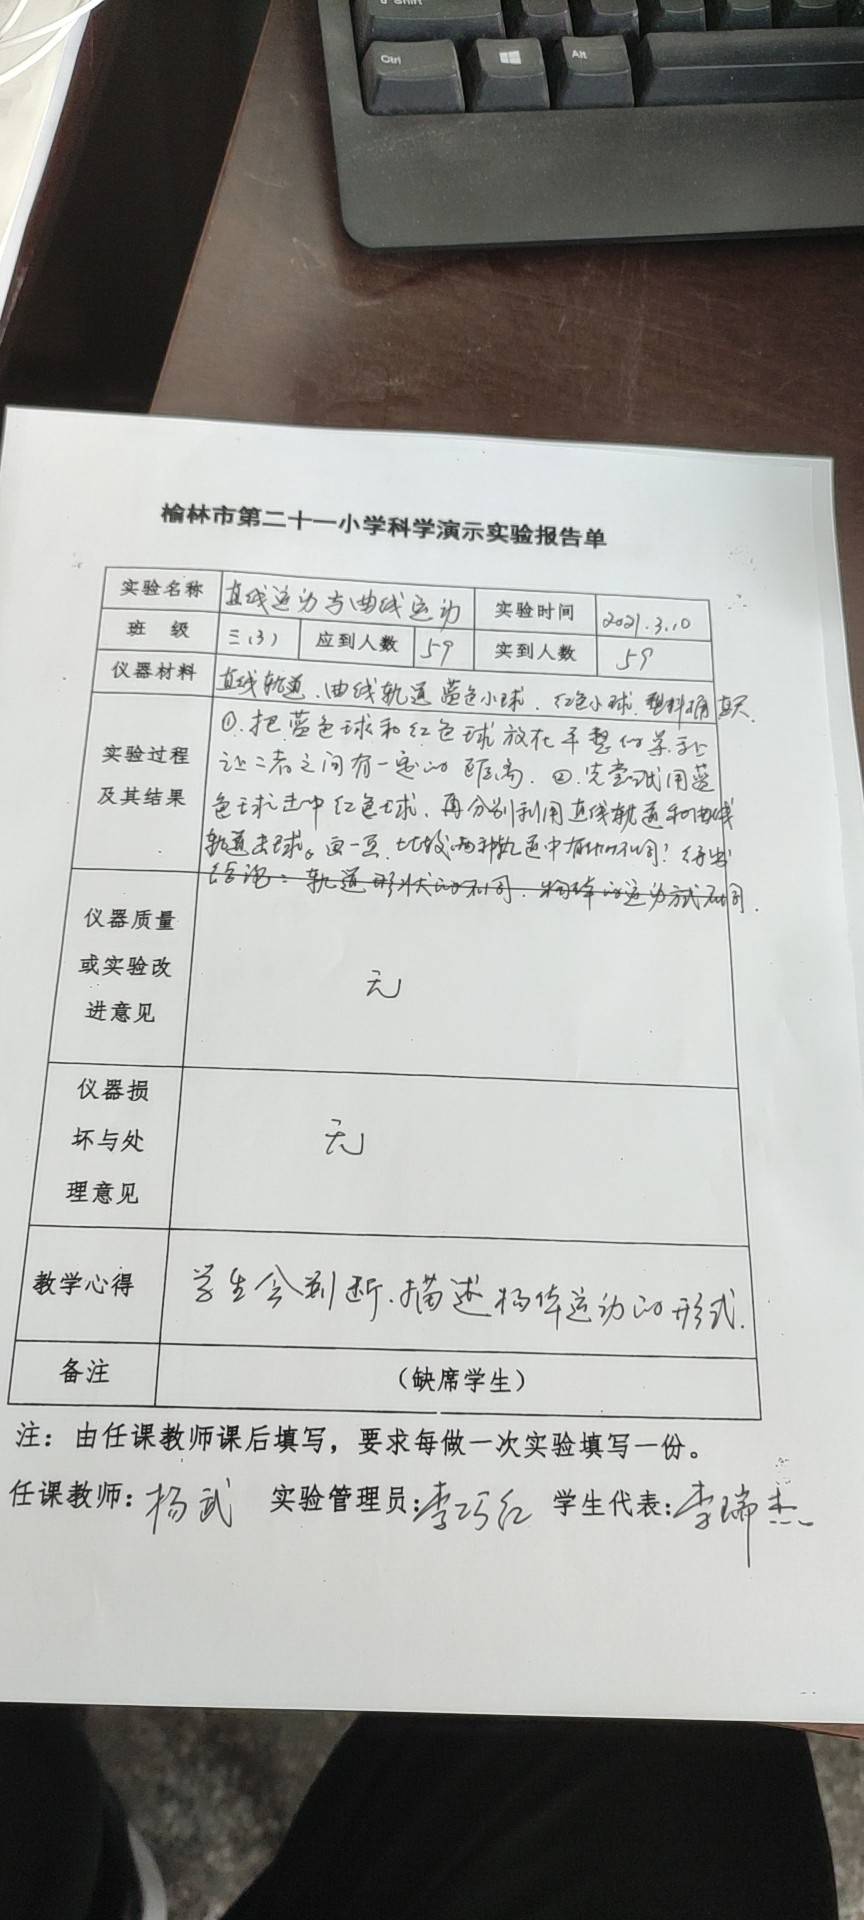 Shift
Ctrl
Alt
榆林市第二十一小学科学演示实验报告单
实验名称 直线运动与曲线运动 实验时间 2021.3.10
班 级 三(3) 应到人数 59 实到人数 59
仪器材料 直线轨道、曲线轨道 蓝色小球、红色小球、塑料桶
实验过程
及其结果
①.把蓝色球和红色球放在平整的桌子上
让二者之间有一定的距离. ②.先尝试用蓝
色球击中红色球，再分别利用直线轨道和曲线
轨道击球。画一画，比较两种轨道中有什么不同？得出
结论：轨道形状的不同，物体的运动方式不同．
仪器质量
或实验改
进意见
无
仪器损
坏与处
理意见
无
教学心得 学生会判断、描述物体运动的形式.
备注 （缺席学生）
注：由任课教师课后填写，要求每做一次实验填写一份。
任课教师：杨武 实验管理员：李巧红 学生代表：李瑞杰